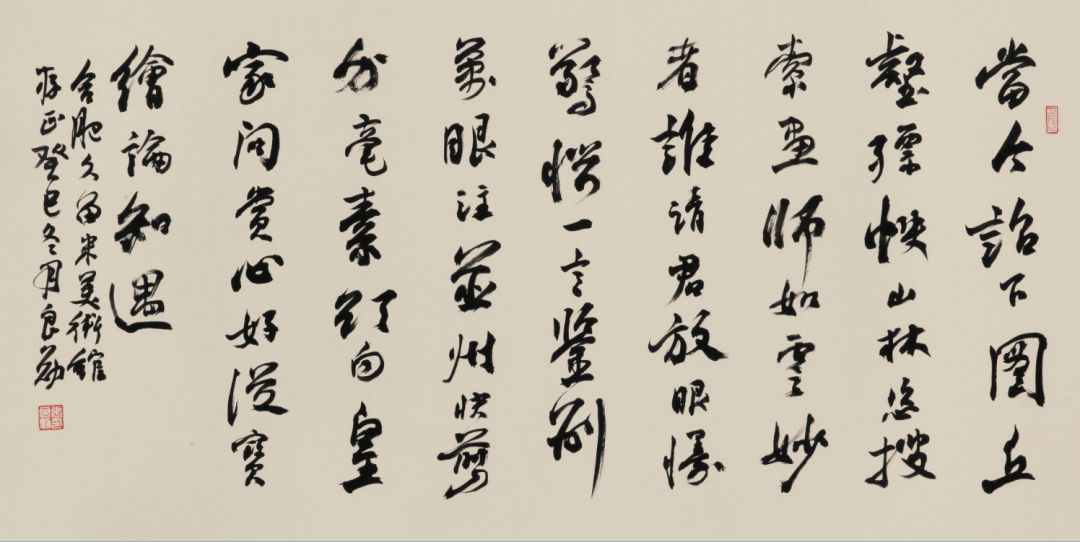 當今詔下圖丘
壑縹帙山林恣搜
索畫師如雲妙
者誰請君放眼慢
驚愕一言鑒別
萬眼注並州快剪
分毫素頭白皇
家問賞心好從寶
繪論知遇
合肥久留米美術館
存正癸巳冬月良